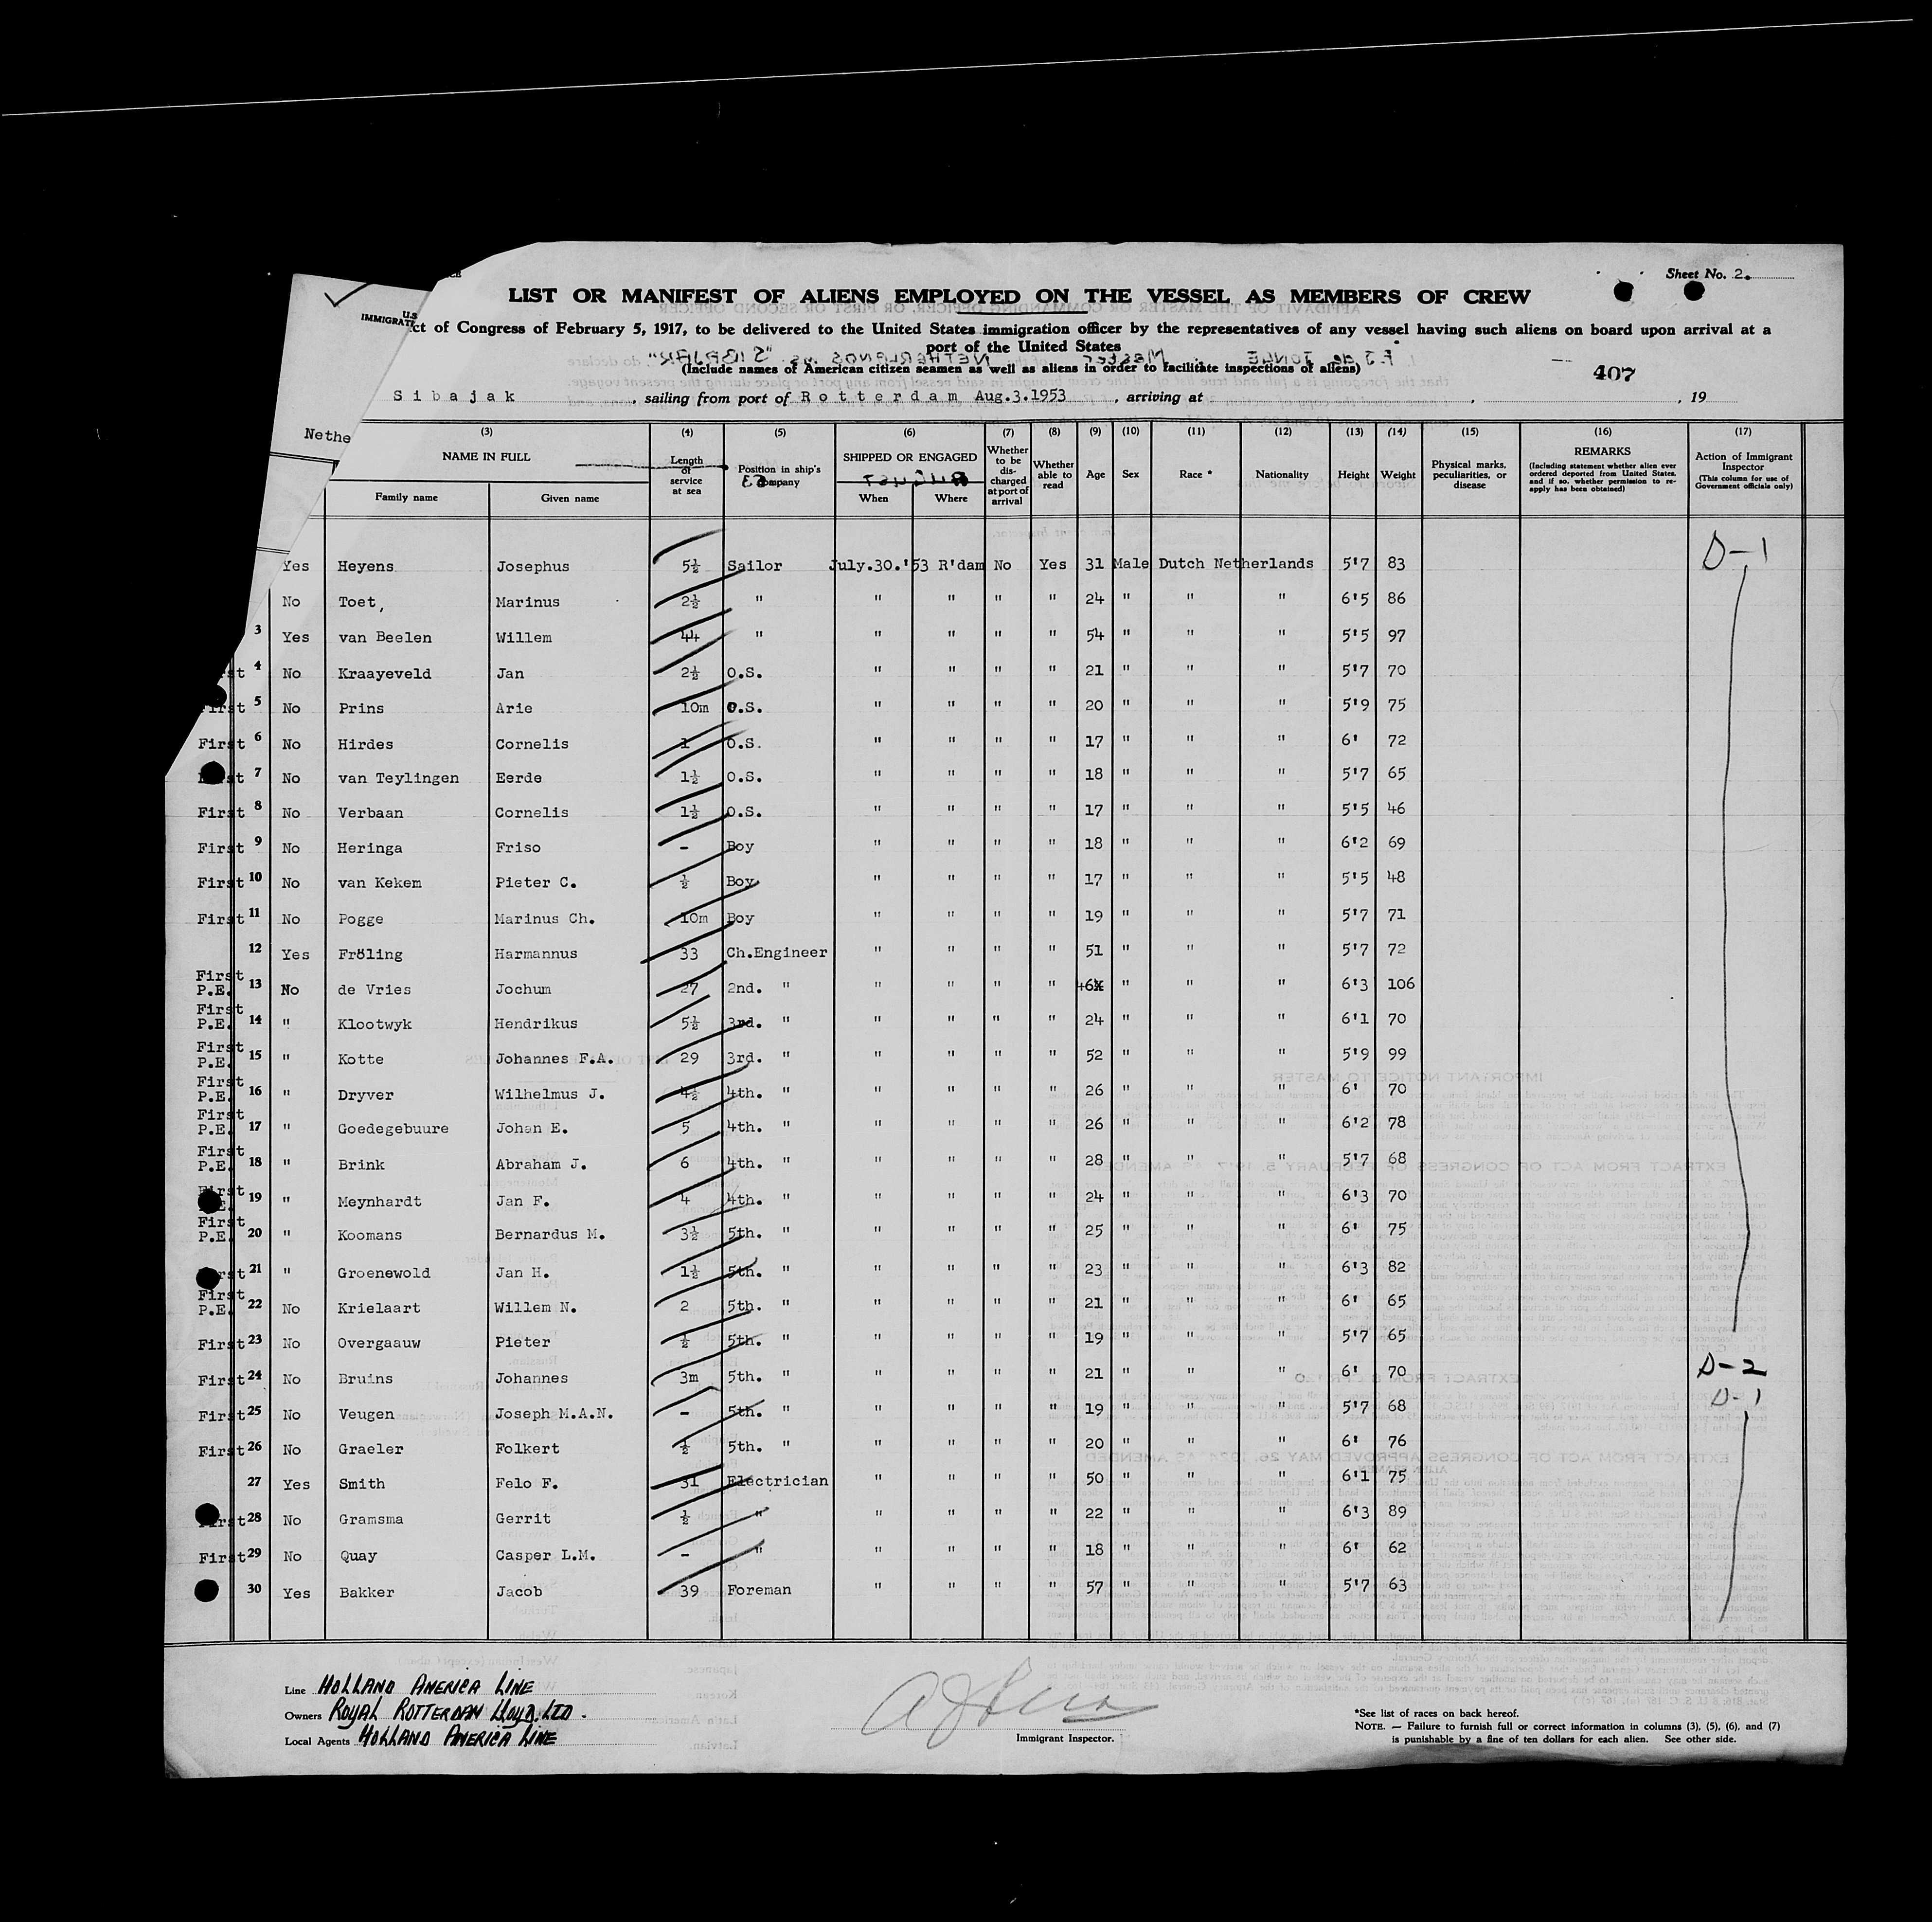 Sheet No. 2.
LIST OR MANIFEST OF ALIENS EMPLOYED ON THE VESSEL AS MEMBERS OF CREW
U.S
IMMIGRAT
ct of Congress of February 5, 1917, to be delivered to the United States immigration officer by the representatives of any vessel having such aliens on board upon arrival at a
port of the United States
(Include names of American citizen seamen as well as aliens in order to facilitate inspections of aliens)
407
Sibajak, sailing from port of Rotterdam Aug.3.1953, arriving at , , 19
Nethe
(3) (4) (5) (6) (7) (8) (9) (10) (11) (12) (13) (14) (15) (16) (17)
NAME IN FULL Family name Given name Length of service at sea Position in ship's company SHIPPED OR ENGAGED When Where Whether to be discharged at port of arrival Whether able to read Age Sex Race * Nationality Height Weight Physical marks, peculiarities, or disease REMARKS (Including statement whether alien ever ordered deported from United States, and if so, whether permission to re-apply has been obtained) Action of Immigrant Inspector (This column for use of Government officials only)
Yes Heyens Josephus 5½ Sailor July.30.'53 R'dam No Yes 31 Male Dutch Netherlands 5'7 83 D-1
No Toet, Marinus 2½ " " " " " 24 " " " 6'5 86
3 Yes van Beelen Willem 44 " " " " " 54 " " " 5'5 97
4 No Kraayeveld Jan 2½ O.S. " " " " 21 " " " 5'7 70
First 5 No Prins Arie 10m O.S. " " " " 20 " " " 5'9 75
First 6 No Hirdes Cornelis 1 O.S. " " " " 17 " " " 6' 72
7 No van Teylingen Eerde 1½ O.S. " " " " 18 " " " 5'7 65
First 8 No Verbaan Cornelis 1½ O.S. " " " " 17 " " " 5'5 46
First 9 No Heringa Friso - Boy " " " " 18 " " " 6'2 69
First 10 No van Kekem Pieter C. ½ Boy " " " " 17 " " " 5'5 48
First 11 No Pogge Marinus Ch. 10m Boy " " " " 19 " " " 5'7 71
12 Yes Fröling Harmannus 33 Ch.Engineer " " " " 51 " " " 5'7 72
First P.E. 13 No de Vries Jochum 27 2nd. " " " " " 46 " " " 6'3 106
First P.E. 14 " Klootwyk Hendrikus 5½ 3rd. " " " " " 24 " " " 6'1 70
First P.E. 15 " Kotte Johannes F.A. 29 3rd. " " " " " 52 " " " 5'9 99
First P.E. 16 " Dryver Wilhelmus J. 4½ 4th. " " " " " 26 " " " 6' 70
First P.E. 17 " Goedegebuure Johan E. 5 4th. " " " " " 26 " " " 6'2 78
First P.E. 18 " Brink Abraham J. 6 4th. " " " " " 28 " " " 5'7 68
First 19 " Meynhardt Jan F. 4 4th. " " " " " 24 " " " 6'3 70
First P.E. 20 " Koomans Bernardus M. 3½ 5th. " " " " " 25 " " " 6' 75
21 " Groenewold Jan H. 1½ 5th. " " " " " 23 " " " 6'3 82
First P.E. 22 No Krielaart Willem N. 2 5th. " " " " " 21 " " " 6' 65
First 23 No Overgaauw Pieter ½ 5th. " " " " " 19 " " " 5'7 65
First 24 No Bruins Johannes 3m 5th. " " " " " 21 " " " 6' 70 D-2
First 25 No Veugen Joseph M.A.N. - 5th. " " " " " 19 " " " 5'7 68 D-1
First 26 No Graeler Folkert ½ 5th. " " " " " 20 " " " 6' 76
27 Yes Smith Felo F. 31 Electrician " " " " 50 " " " 6'1 75
First 28 No Gramsma Gerrit ½ " " " " " 22 " " " 6'3 89
First 29 No Quay Casper L.M. - " " " " " 18 " " " 6' 62
30 Yes Bakker Jacob 39 Foreman " " " " 57 " " " 5'7 63
Line HOLLAND AMERICA LINE
Owners ROYAL ROTTERDAM LLOYD. LTD.
Local Agents HOLLAND AMERICA LINE
Immigrant Inspector.
*See list of races on back hereof.
NOTE. — Failure to furnish full or correct information in columns (3), (5), (6), and (7)
is punishable by a fine of ten dollars for each alien. See other side.